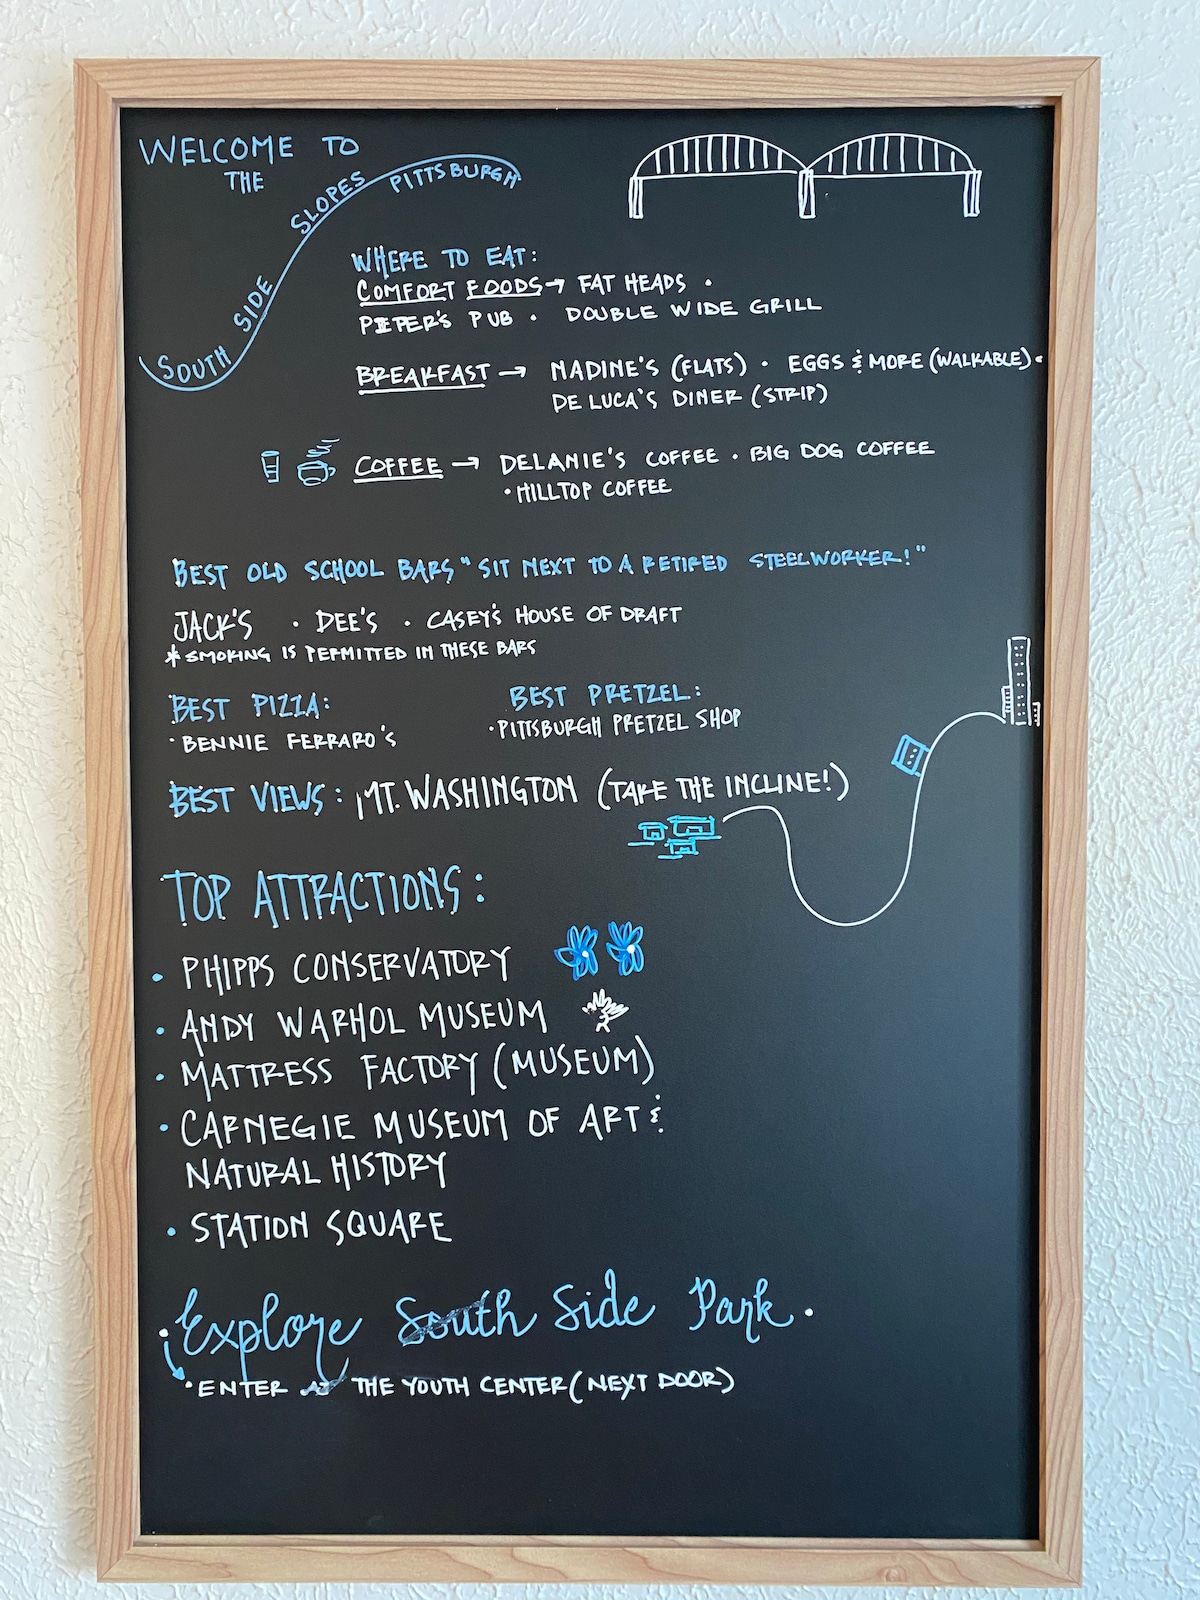 WELCOME TO
THE
SOUTH SIDE SLOPES PITTSBURGH
WHERE TO EAT:
COMFORT FOODS → FAT HEADS ·
PIEPER'S PUB · DOUBLE WIDE GRILL
BREAKFAST → NADINE'S (FLATS) · EGGS & MORE (WALKABLE) ·
DE LUCA'S DINER (STRIP)
COFFEE → DELANIE'S COFFEE · BIG DOG COFFEE
· HILLTOP COFFEE
BEST OLD SCHOOL BARS "SIT NEXT TO A RETIRED STEELWORKER!"
JACK'S · DEE'S · CASEY'S HOUSE OF DRAFT
* SMOKING IS PERMITTED IN THESE BARS
BEST PIZZA:
· BENNIE FERRARO'S
BEST PRETZEL:
· PITTSBURGH PRETZEL SHOP
BEST VIEWS: MT. WASHINGTON (TAKE THE INCLINE!)
TOP ATTRACTIONS:
· PHIPPS CONSERVATORY
· ANDY WARHOL MUSEUM
· MATTRESS FACTORY (MUSEUM)
· CARNEGIE MUSEUM OF ART &
NATURAL HISTORY
· STATION SQUARE
· Explore South Side Park ·
· ENTER AT THE YOUTH CENTER (NEXT DOOR)